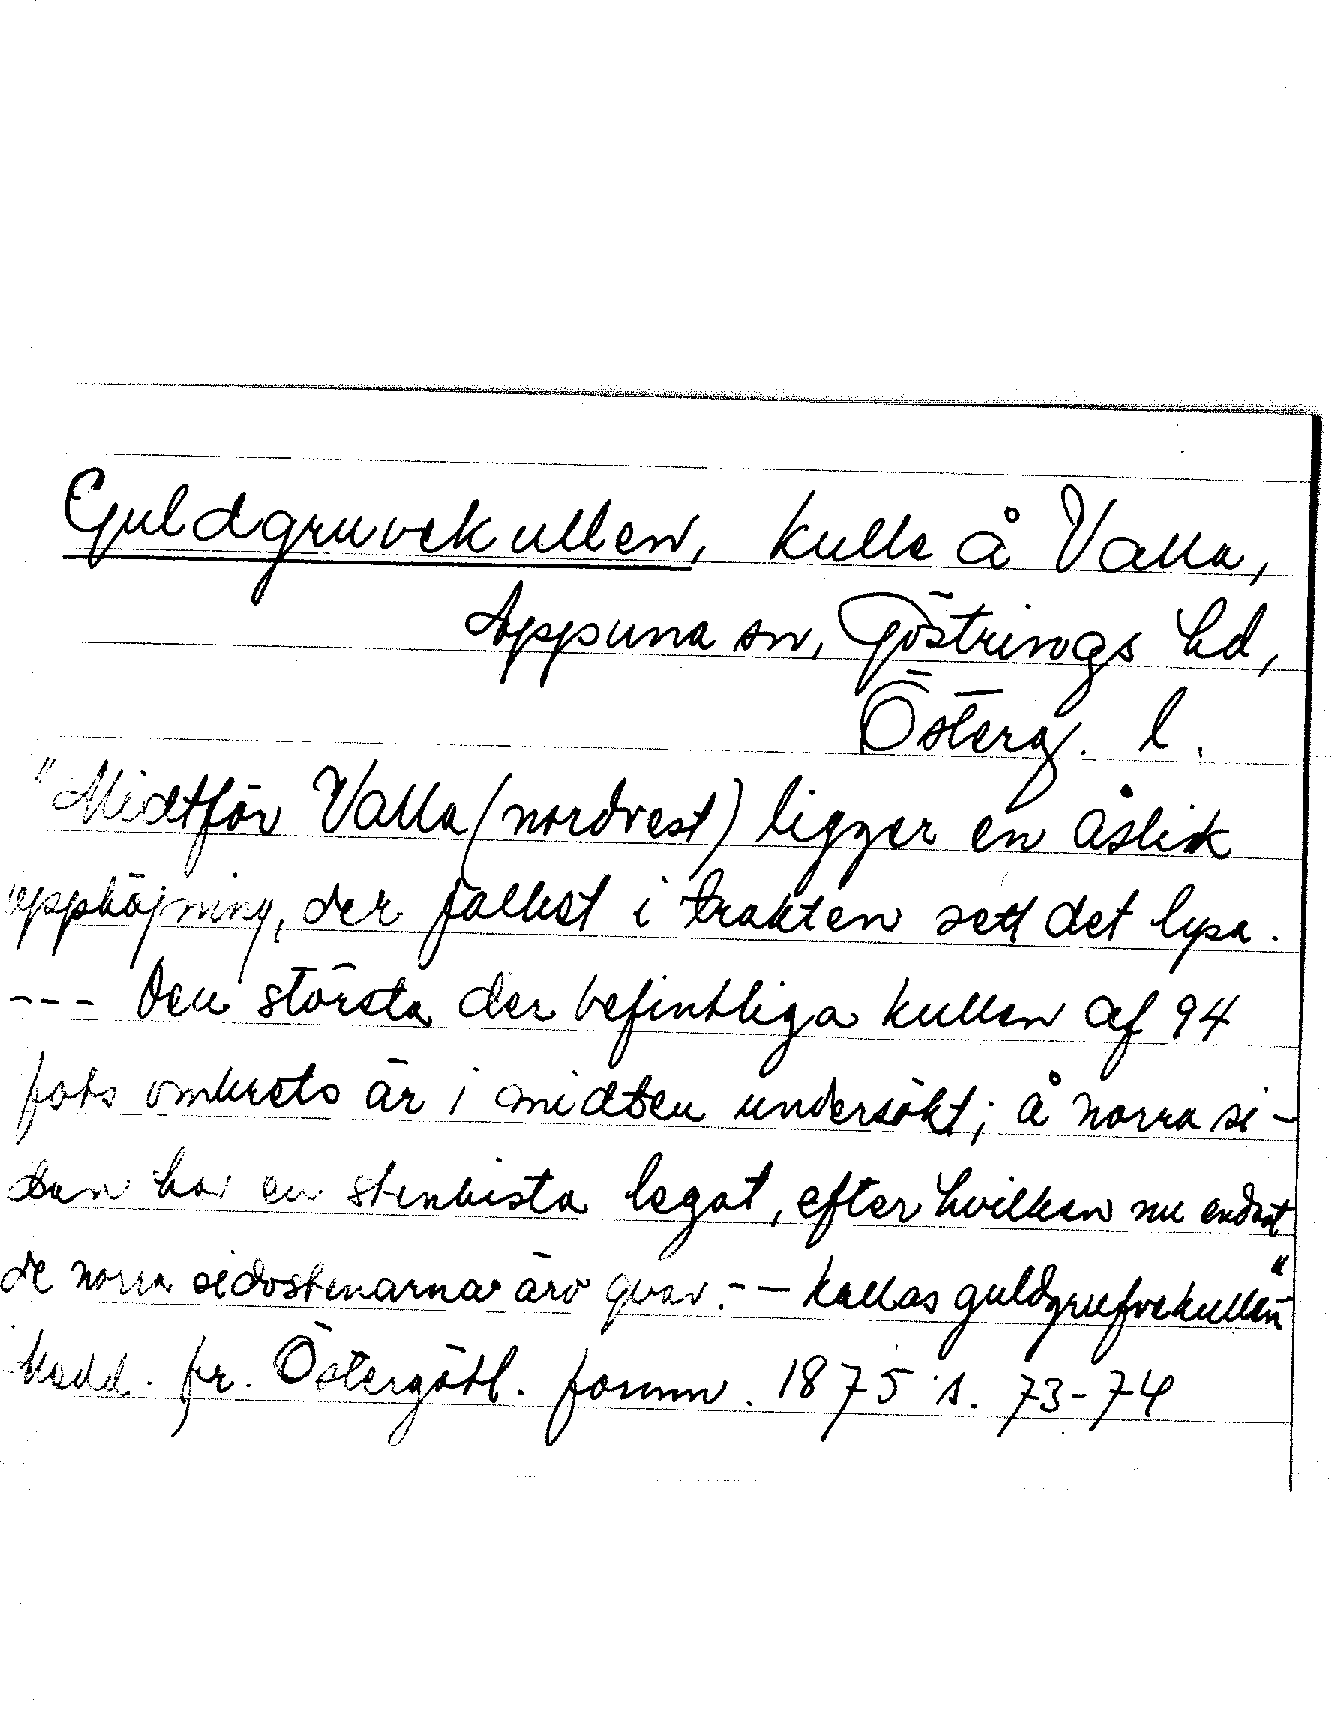 Guldgruvekullen, kulle å Valla,
Appuna sn, Göstrings hd,
Österg. l.
"Midtför Valla (nordvest) ligger en åslik
upphöjning, der folket i trakten sett det lysa.
--- Den största der befintliga kullen af 94
fots omkrets är i midten undersökt; å norra si-
dan har en stenkista legat, efter hvilken nu endast
de norra sidostenarna äro qvar. -- kallas guldgrufvekullen"
Medd. fr. Östergötl. fornm. 1875 s. 73-74